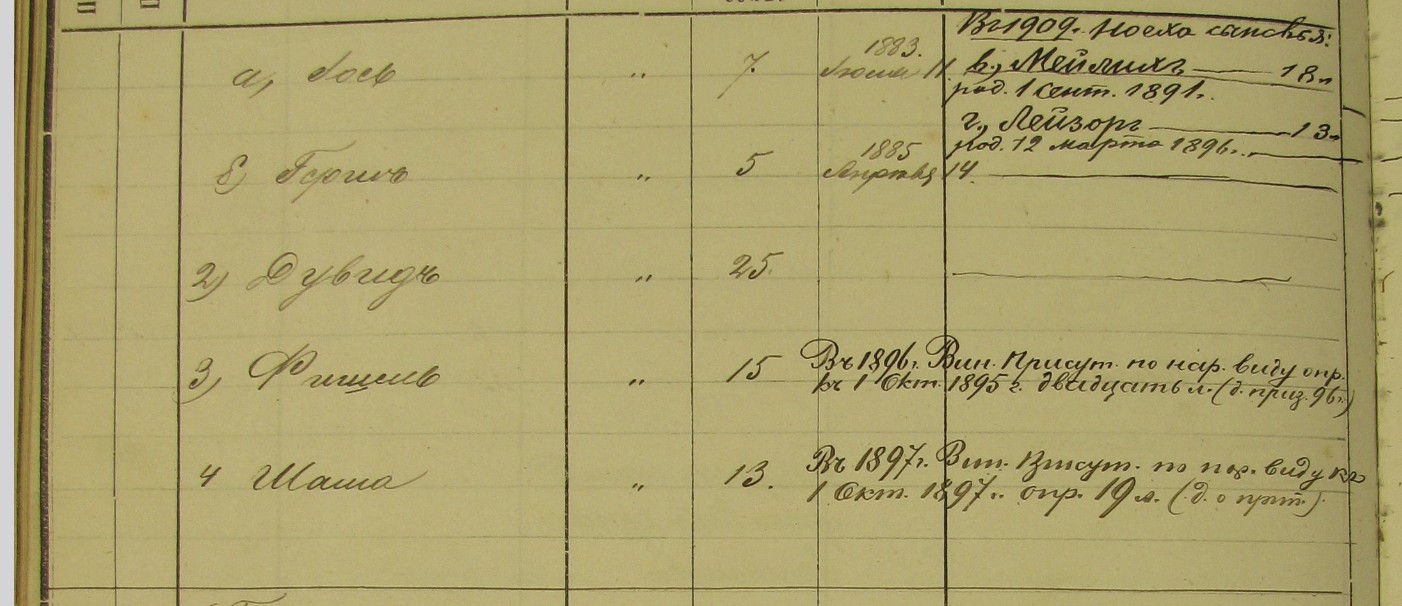 Въ 1909г. Носеха сыновья:
а, Іось " 7. 1883. Іюля 11.
в, Мейлихъ — 18 л
род. 1 сент. 1891 г.
г, Лейзоръ — 13 л
род. 12 марта 1896 г.
б) Гершъ " 5 1885 Апрѣля 14.
2) Дувидъ " 25.
3) Фишель " 15
Въ 1896 г. Вин. Присут. по нар. виду опр.
къ 1 Окт. 1895 г. двадцать л. (д. приз. 96 г.)
4 Шая " 13.
Въ 1897 г. Вин. Присут. по нар. виду къ
1 Окт. 1897 г. опр. 19 л. (д. о прит.)